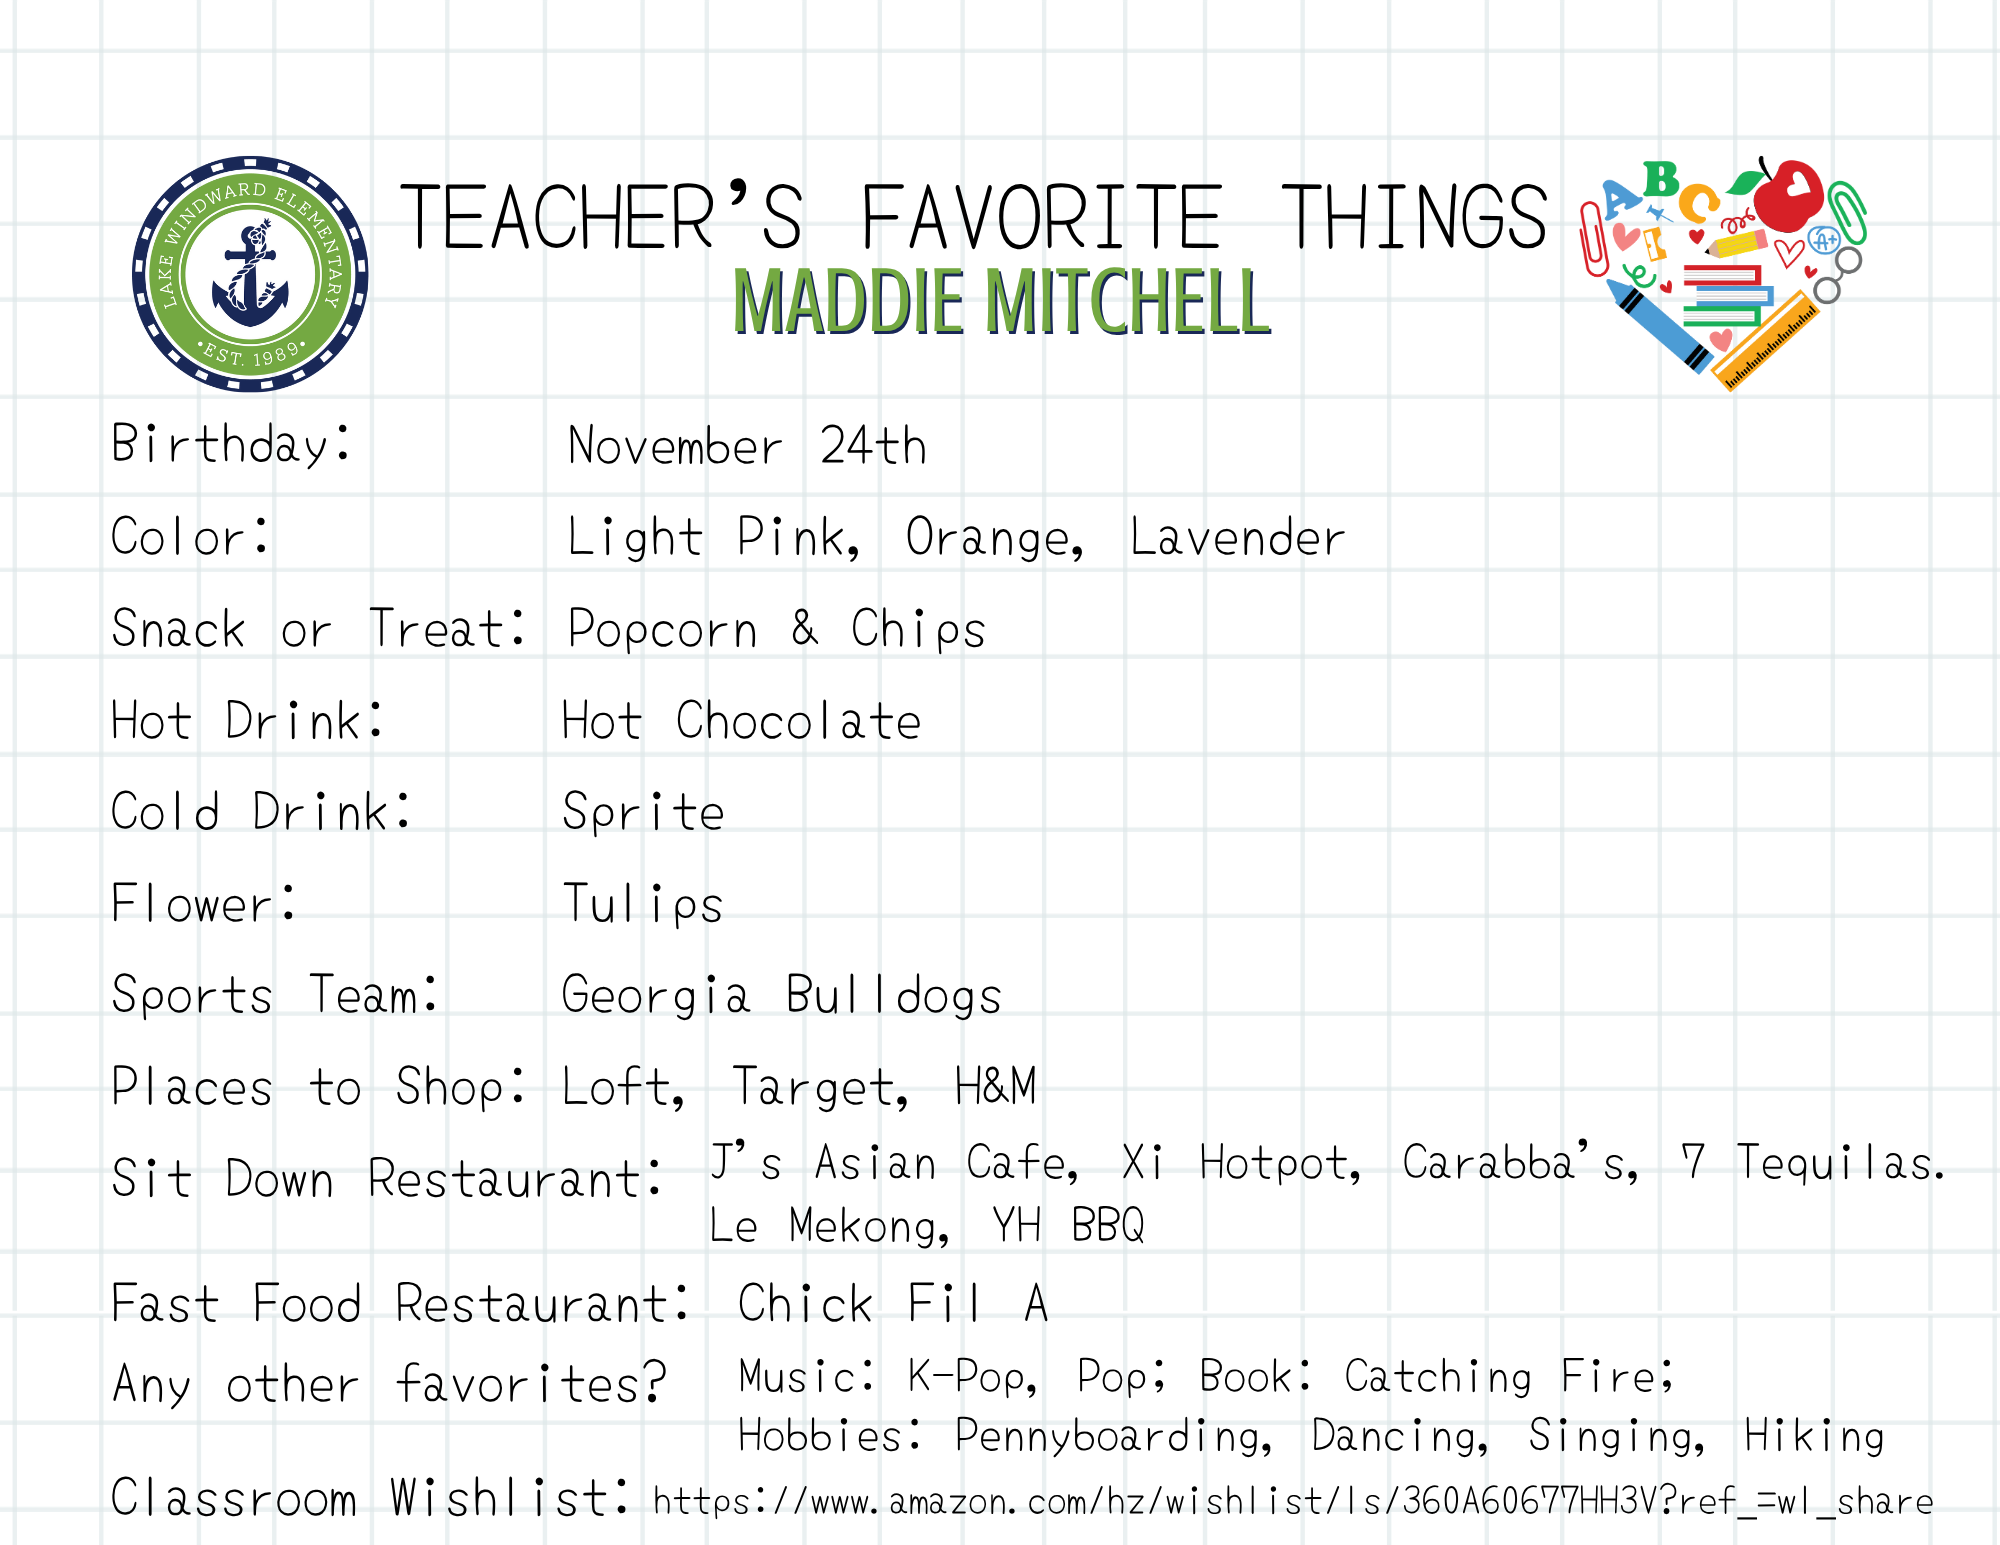 LAKE WINDWARD ELEMENTARY
•EST. 1989•
TEACHER'S FAVORITE THINGS
MADDIE MITCHELL
A B C
A+
Birthday: November 24th
Color: Light Pink, Orange, Lavender
Snack or Treat: Popcorn & Chips
Hot Drink: Hot Chocolate
Cold Drink: Sprite
Flower: Tulips
Sports Team: Georgia Bulldogs
Places to Shop: Loft, Target, H&M
Sit Down Restaurant: J's Asian Cafe, Xi Hotpot, Carabba's, 7 Tequilas.
Le Mekong, YH BBQ
Fast Food Restaurant: Chick Fil A
Any other favorites? Music: K-Pop, Pop; Book: Catching Fire;
Hobbies: Pennyboarding, Dancing, Singing, Hiking
Classroom Wishlist: https://www.amazon.com/hz/wishlist/ls/360A60677HH3V?ref_=wl_share